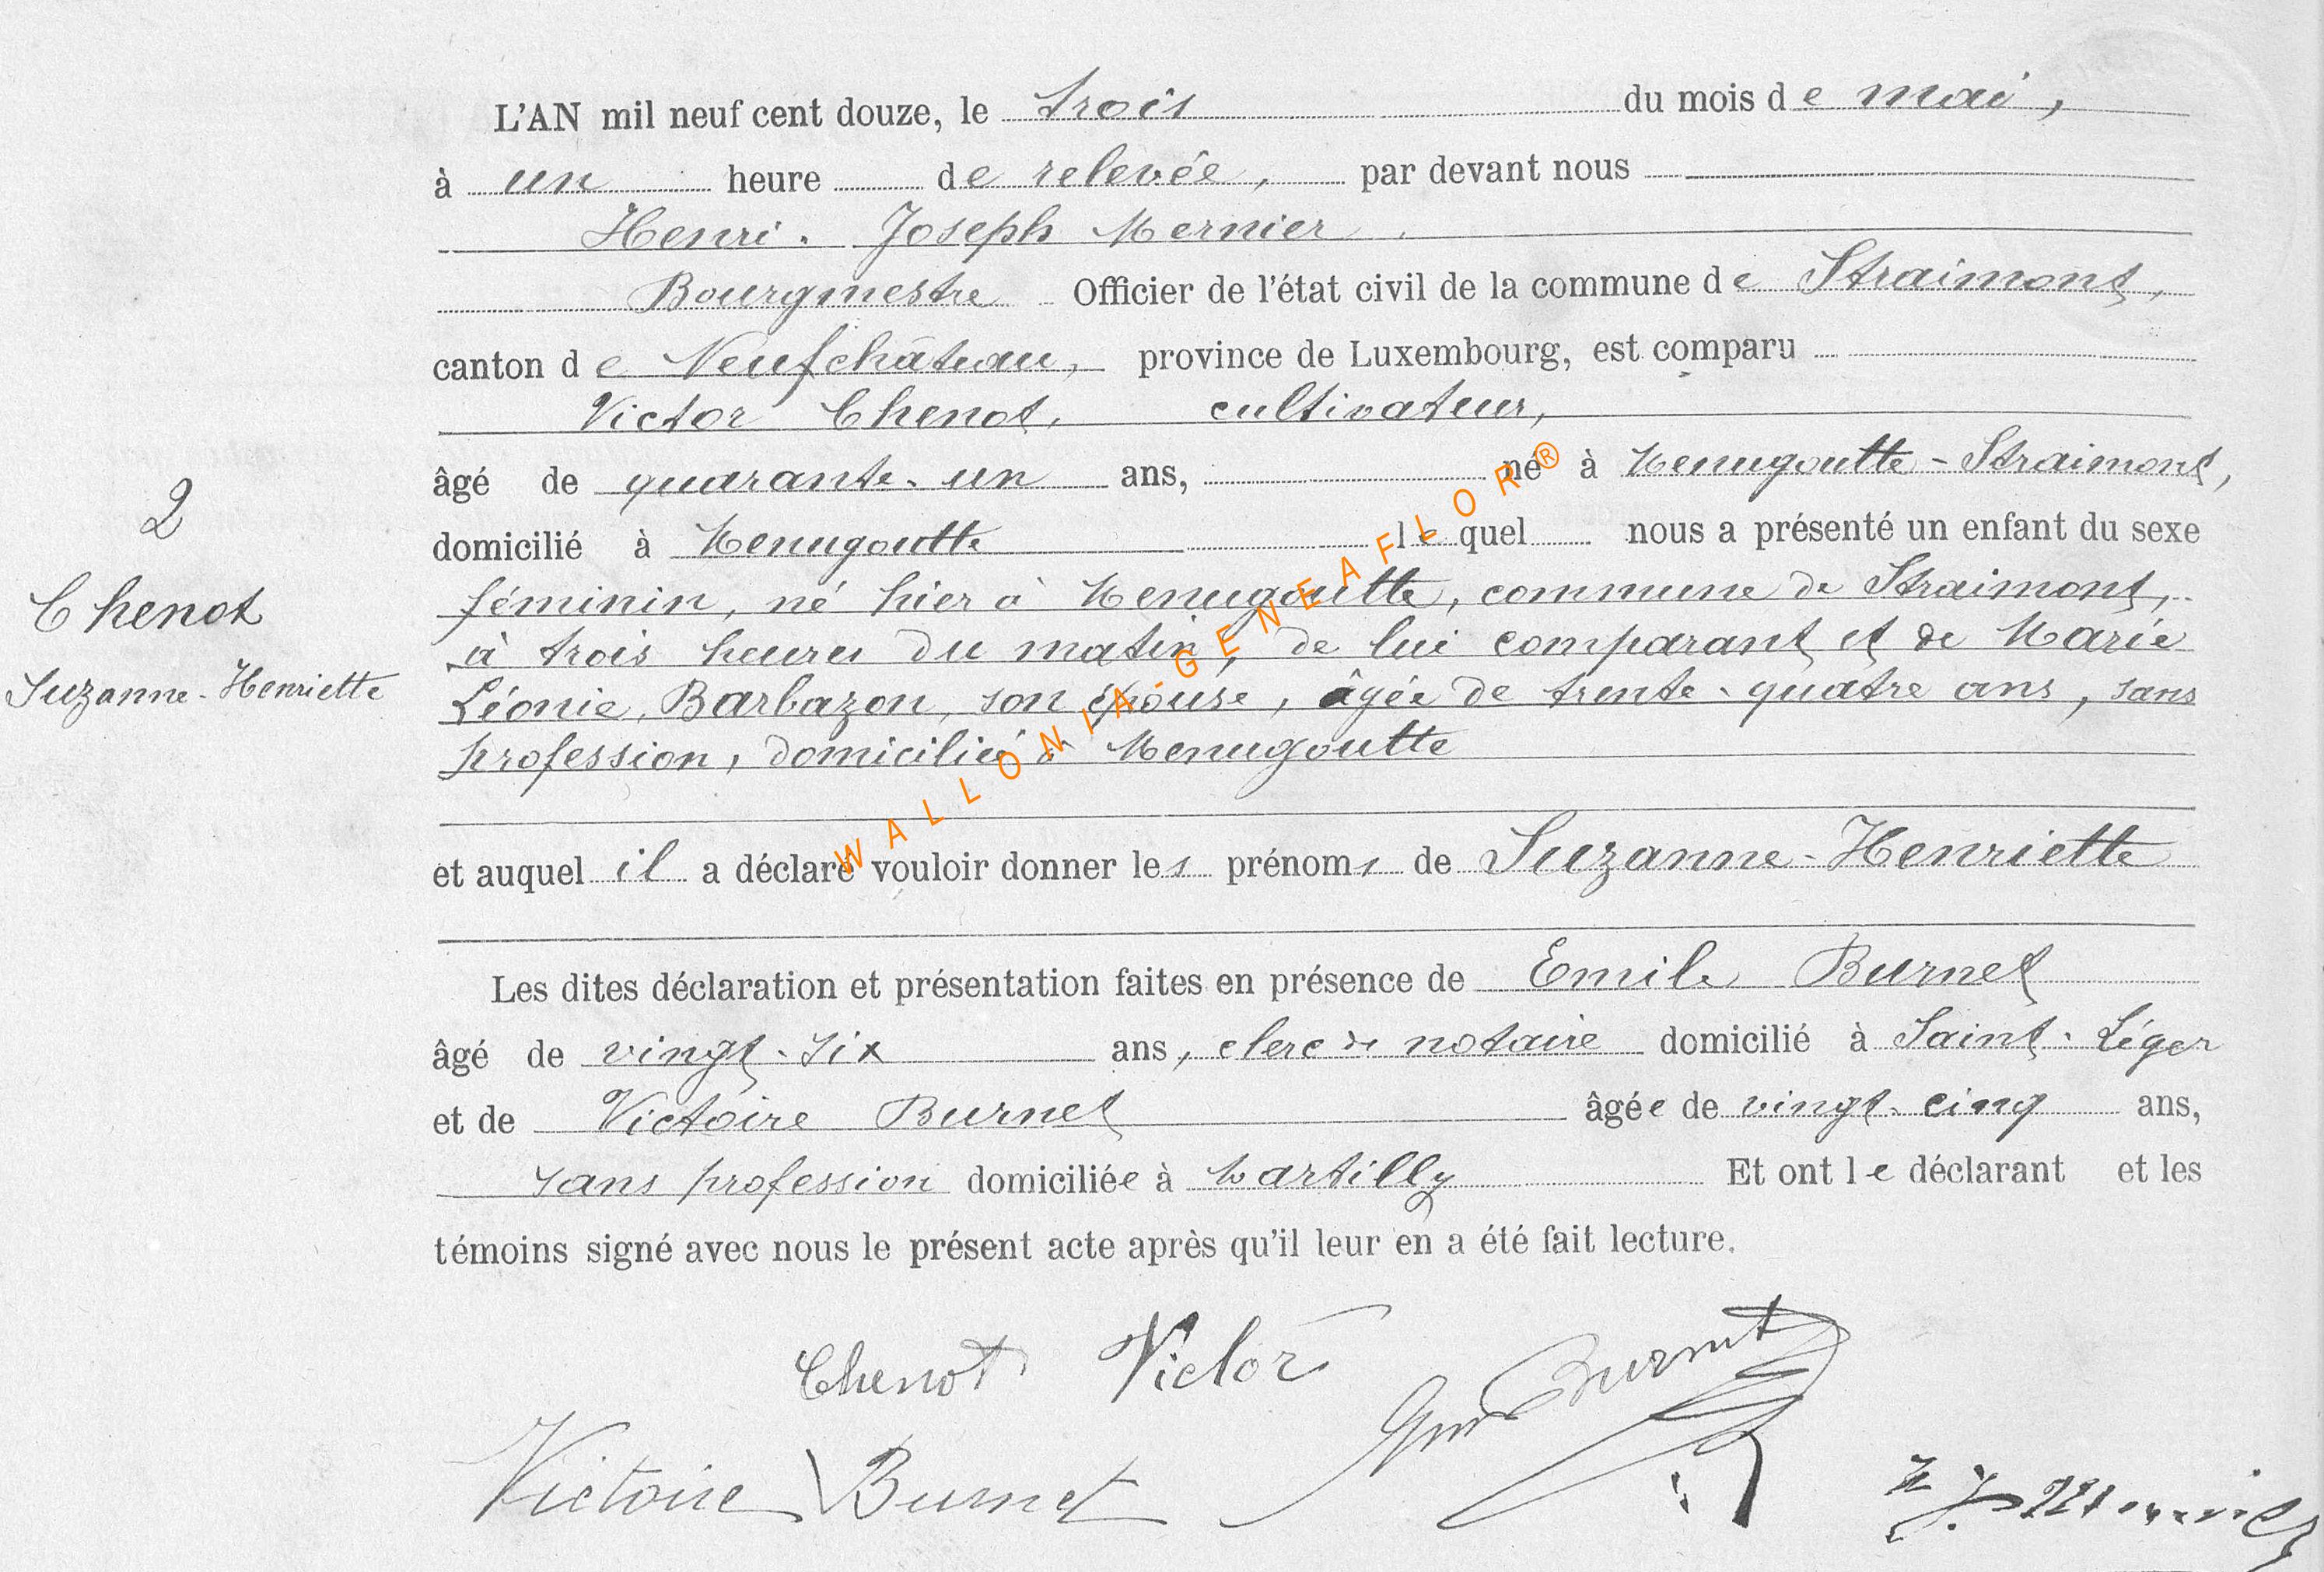 L'AN mil neuf cent douze, le trois du mois de mai,
à un heure de relevée, par devant nous
Henri-Joseph Mernier
Bourgmestre Officier de l'état civil de la commune de Straimont,
canton de Neufchâteau, province de Luxembourg, est comparu
Victor Chenot, cultivateur,
âgé de quarante-un ans, né à Menugoutte-Straimont,
2
domicilié à Menugoutte lequel nous a présenté un enfant du sexe
Chenot
féminin, né hier à Menugoutte, commune de Straimont,
à trois heures du matin, de lui comparant et de Marie
Suzanne-Henriette
Léonie Barbazon, son épouse, âgée de trente-quatre ans, sans
profession, domiciliée à Menugoutte
et auquel il a déclaré vouloir donner les prénoms de Suzanne-Henriette
Les dites déclaration et présentation faites en présence de Emile Burnet
âgé de vingt-six ans, clerc de notaire domicilié à Saint-Léger
et de Victoire Burnet âgée de vingt-cinq ans,
sans profession domiciliée à Martilly Et ont le déclarant et les
témoins signé avec nous le présent acte après qu'il leur en a été fait lecture.
Chenot Victor
Burnet
Victoire Burnet
H J Mernier
WALLONIA-GENEAFLOR®